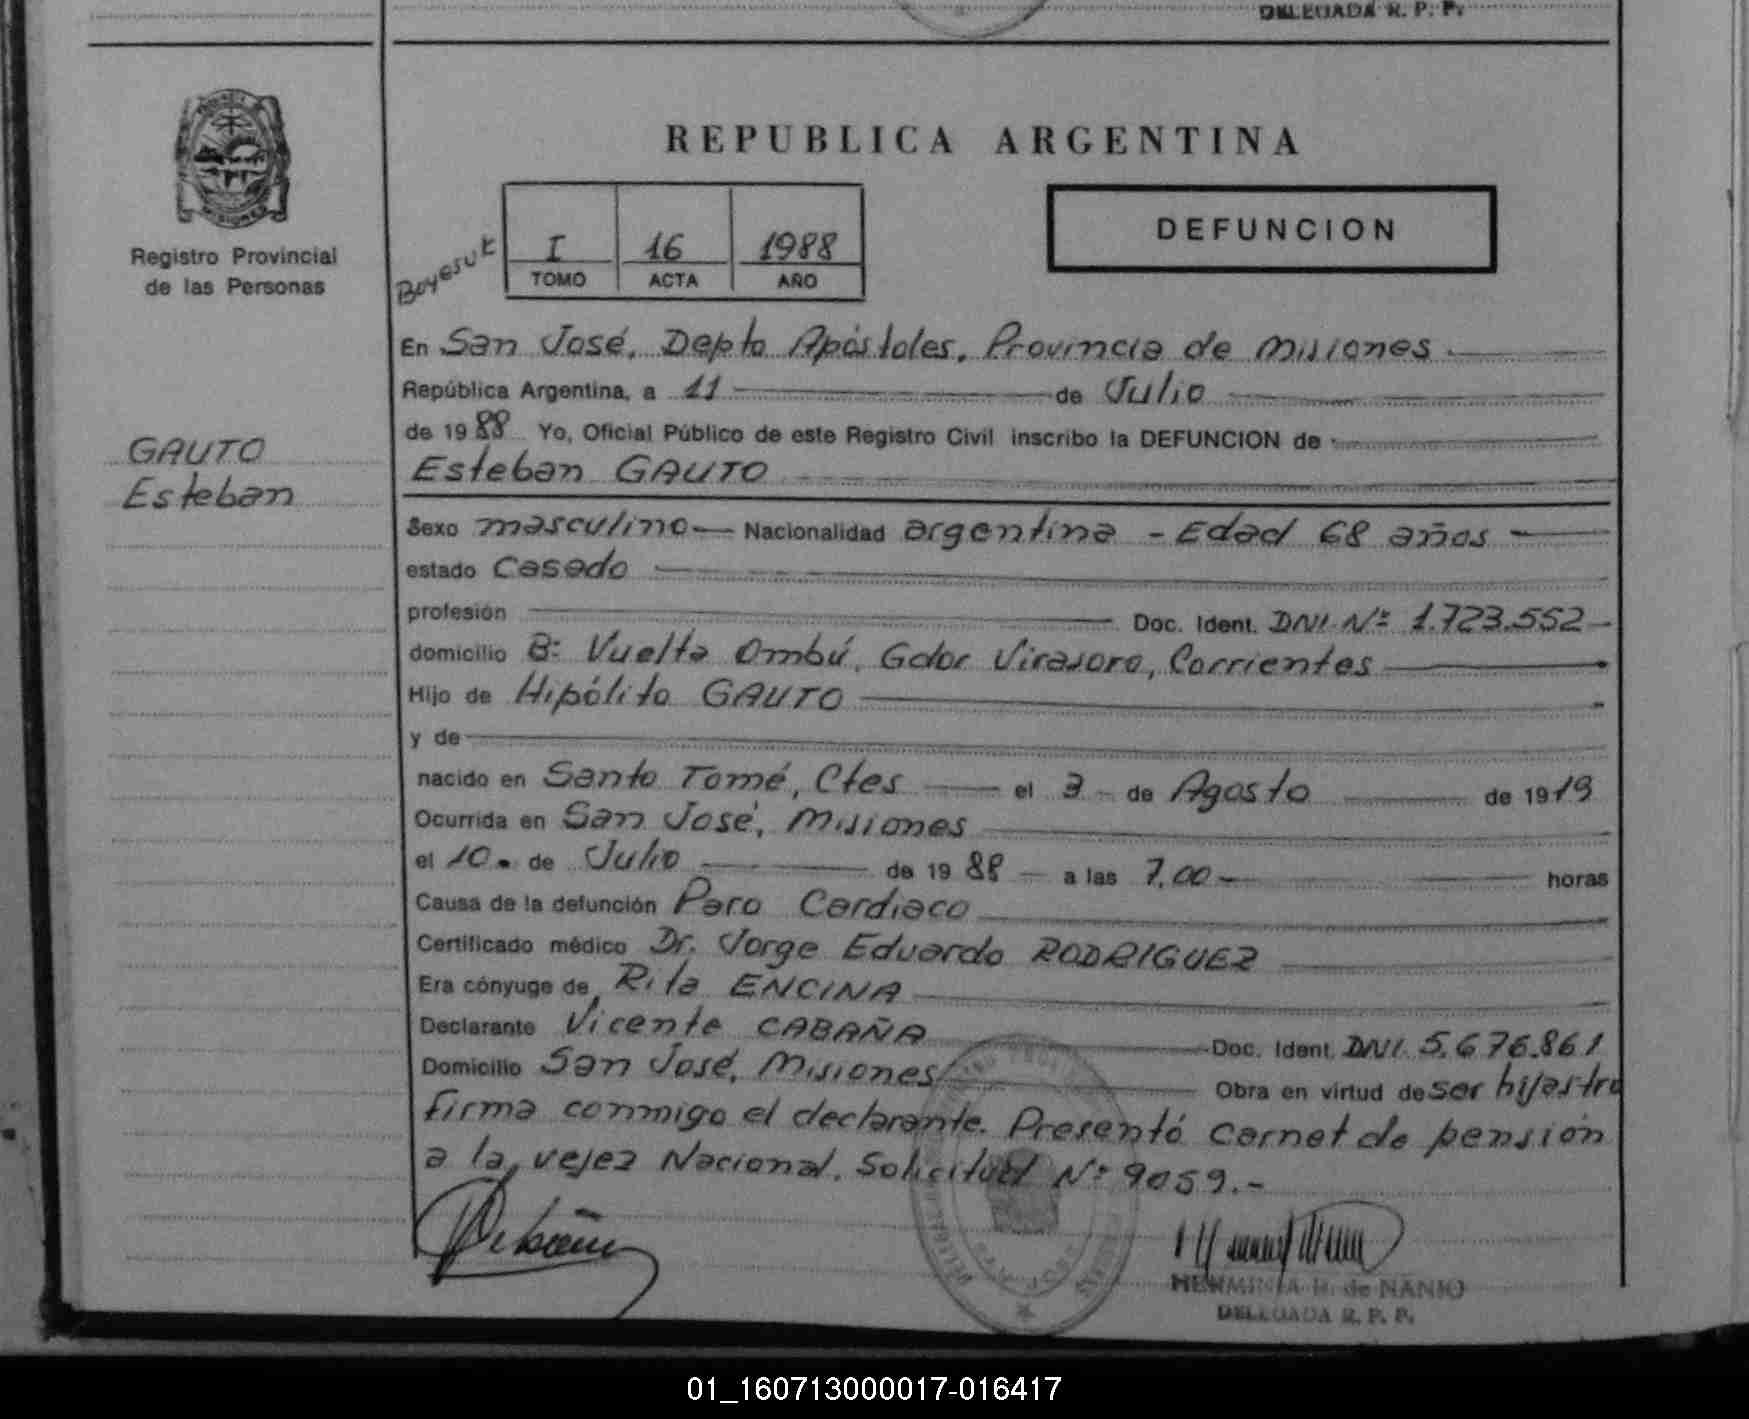 DELEGADA R. P. P.
MISIONES
Registro Provincial
de las Personas
REPUBLICA ARGENTINA
DEFUNCION
I 16 1988
TOMO ACTA AÑO
GAUTO
Esteban
En San José, Depto Apóstoles, Provincia de Misiones
República Argentina, a 11 de Julio
de 1988 Yo, Oficial Público de este Registro Civil inscribo la DEFUNCION de
Esteban GAUTO
Sexo masculino Nacionalidad argentina - Edad 68 años
estado Casado
profesión Doc. Ident. DNI Nº 1.723.552
domicilio Bº Vuelta Ombú, Gdor Virasoro, Corrientes
Hijo de Hipólito GAUTO
y de
nacido en Santo Tomé, Ctes el 3 de Agosto de 1919
Ocurrida en San José, Misiones
el 10 de Julio de 1988 a las 7,00 horas
Causa de la defunción Paro Cardiaco
Certificado médico Dr. Jorge Eduardo RODRIGUEZ
Era cónyuge de Rita ENCINA
Declarante Vicente CABAÑA Doc. Ident. DNI. 5.676.861
Domicilio San José, Misiones Obra en virtud de ser hijastro
firma conmigo el declarante. Presentó carnet de pensión
a la vejez Nacional. Solicitud Nº 9059.-
HERMINIA H. de NANIO
DELEGADA R. P. P.
01_160713000017-016417